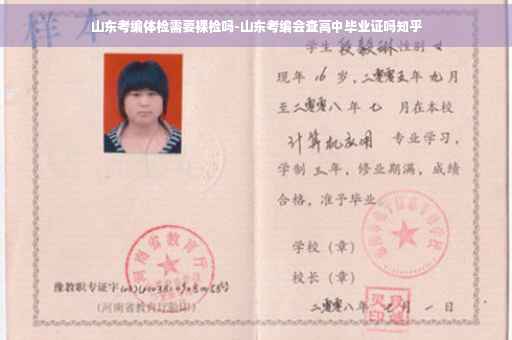 山东考编体检需要裸检吗-山东考编会查高中毕业证吗知乎
样本
学生段毅琳性别女
现年16岁，二零零五年九月
至二零零八年七月在本校
计算机应用专业学习，
学制三年，修业期满，成绩
合格，准予毕业。
学校（章）
校长（章）
二零零八年七月一日
河南省教育厅
豫教职专证字
（河南省教育厅验印）